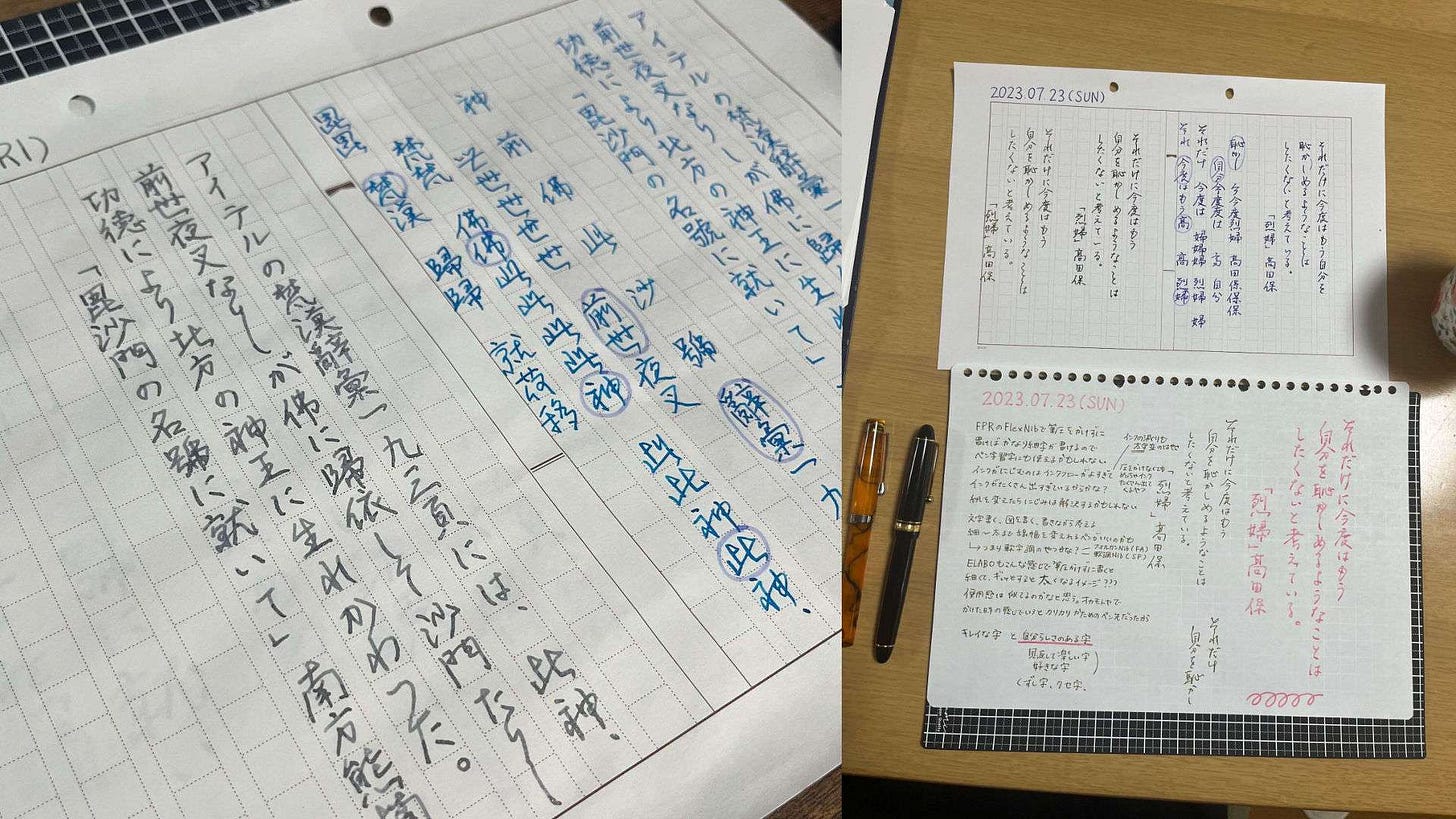 アイテルの梵漢辭彙一
前世夜叉なりしが佛に歸
功徳により北方の神王に生
「毘沙門の名號に就いて」
神 前 佛 此 沙 號 辭彙一九
世世世世 前世夜叉 此此神此神、
梵梵 佛佛此此此此神
梵漢 歸歸 就 移
毘毘
アイテルの梵漢辭彙一九三頁には、此神、
前世夜叉なりしが佛に歸依して沙門たりし
功徳により北方の神王に生れかわつた。
「毘沙門の名號に就いて」南方熊
2023.07.23(SUN)
それだけに今度はもう自分を
恥かしめるようなことは
したくないと考えている。
「烈婦」高田保
恥かし 今今度烈婦 高田保保保
自分今度度は 高 自分
それだけ 今度は 婦婦婦 烈婦 婦
それ 今度はもう高 烈婦
それだけに今度はもう
自分を恥かしめるようなことは
したくないと考えている。
「烈婦」高田保
それだけに今度はもう
自分を恥かしめるようなことは
したくないと考えている。
「烈婦」高田保
2023.07.23(SUN)
それだけに今度はもう
自分を恥かしめるようなことは
したくないと考えている。
「烈婦」高田保
それだけに今度はもう
自分を恥かしめるようなことは
したくないと考えている。
「烈婦」高田保
それだけ
自分を恥か
FPRのFlexNibで筆圧をかけずに
書けばかなり細字が書けるので
ペン字習字にも使えるかもしれない
インクがにじむのはインクフローがよすぎて
インクがたくさん出すぎているからかな?
紙を変えたらにじみは解決するかもしれない
インクの減りも
文字書く、図を書く、書きながら考える
細〜太まで線幅を変えれるペンがいいのかも
↳つまり軟字調のやつかな?
フォルカンNib(FA)
軟調Nib(SF)
ELABOもこんな感じで筆圧かけずに書くと
細くて、ギュッとすると太くなるイメージ???
使用感は似てるのかなと思う。
キレイな字 と 自分らしさのある字
見返して楽しい字
好きな字
くずし字、クセ字、